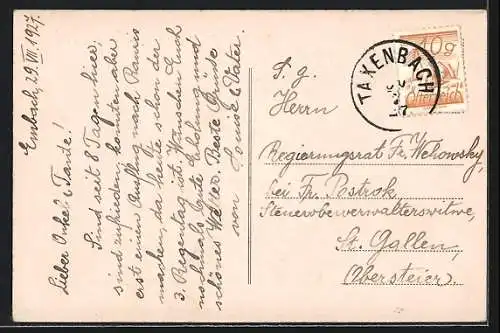 Embach, 29. VII. 1927.
Lieber Onkel & Tante!
Sind seit 8 Tagen hier,
sind zufrieden, konnten aber
erst einen Ausflug nach Rauris
machen, da heute schon der
3. Regentag ist. Wünschen Euch
nochmals gute Erholung und
schönes Wetter. Beste Grüße
von Louise & Vater.
TAXENBACH
10g
Österreich
S. g.
Herrn
Regierungsrat Fr. Wehowsky,
bei Fr. Postrok
Steueroberverwalterswitwe,
St. Gallen,
(Obersteier).